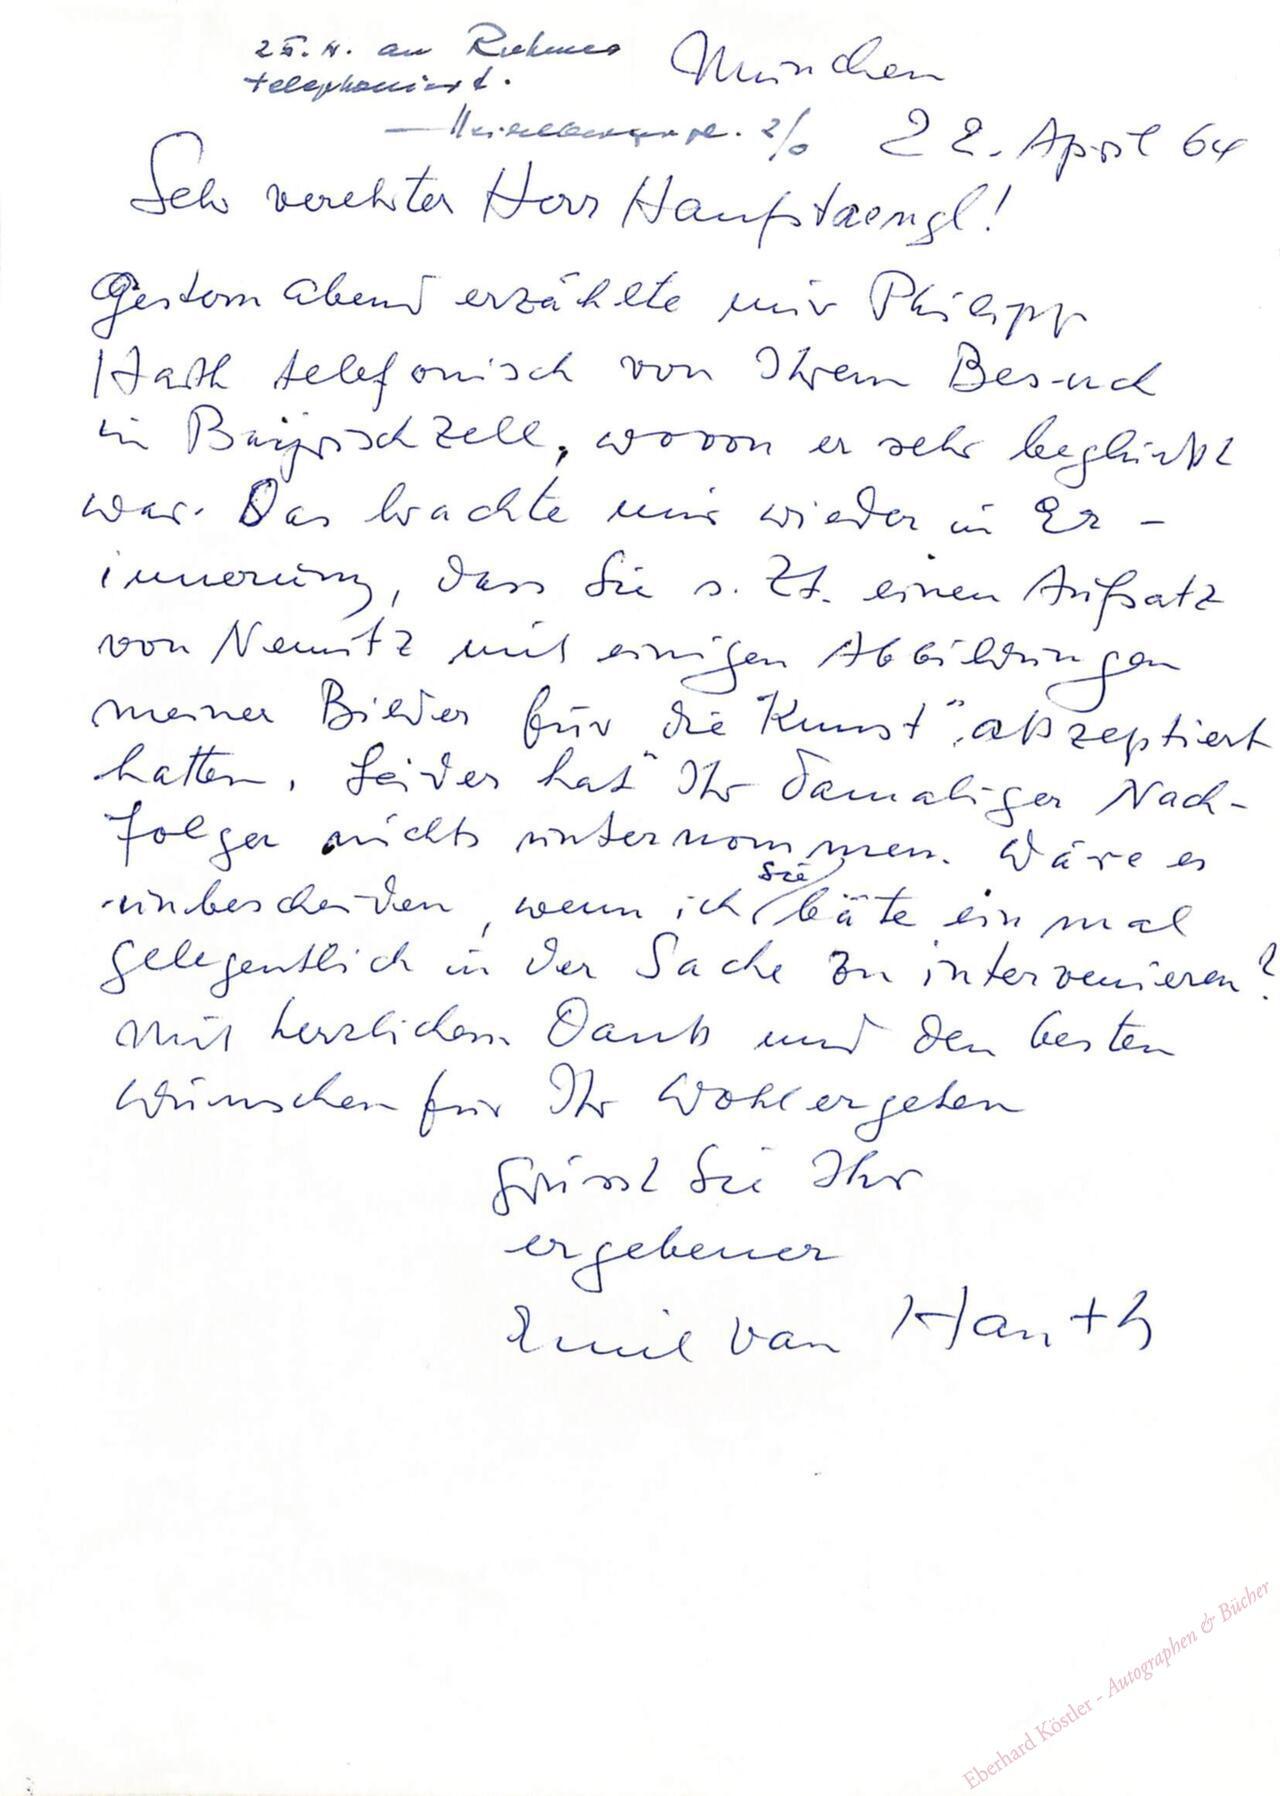 25. 4. an
telephoniert.
München
22. April 64
Sehr verehrter Herr Hanfstaengl!
Gestern Abend erzählte mir Philipp
Harth telefonisch von Ihrem Besuch
in Bayrischzell, wovon er sehr beglückt
war. Das brachte mir wieder in Er-
innerung, dass Sie s. Zt. einen Aufsatz
von Nemitz mit einigen Abbildungen
meiner Bilder für die "Kunst" akzeptiert
hatten. Leider hat Ihr damaliger Nach-
folger nichts unternommen. Wäre es
unbescheiden, wenn ich Sie bäte einmal
gelegentlich in der Sache zu intervenieren?
Mit herzlichem Dank und den besten
Wünschen für Ihr Wohlergehen
grüsst Sie Ihr
ergebener
Emil van Hauth
Eberhard Köstler - Autographen & Bücher